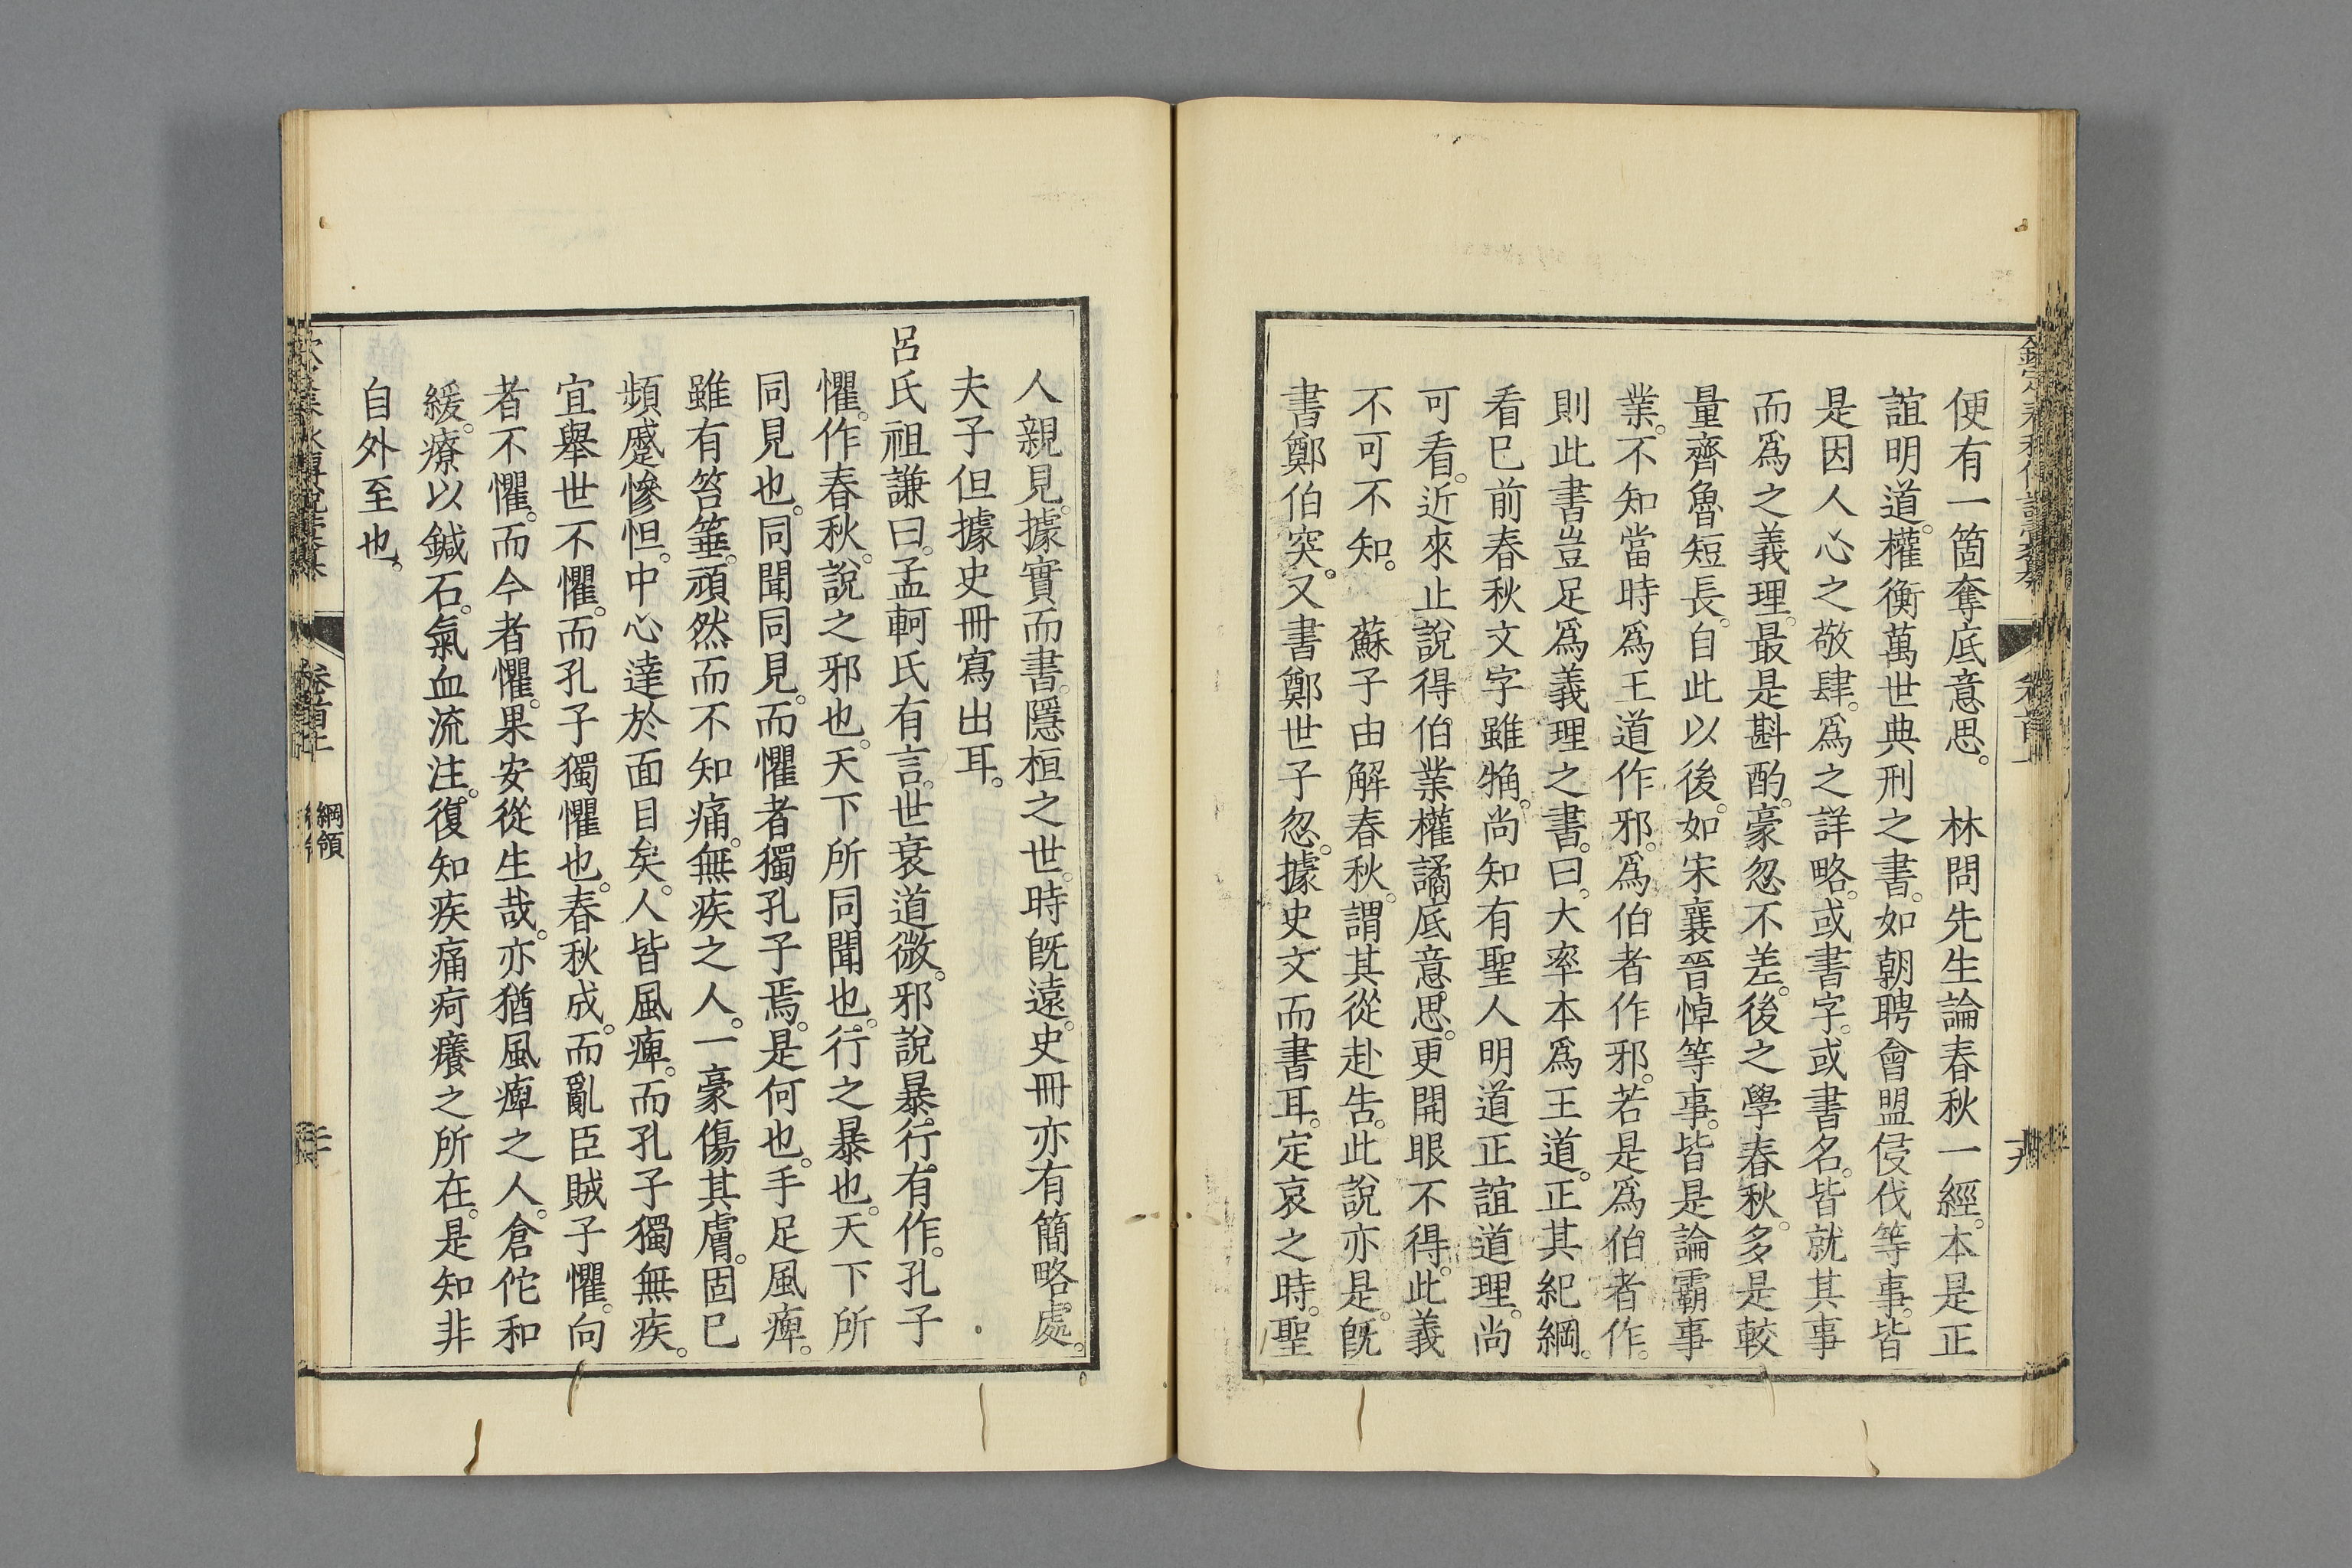 便有一箇奪底意思。　林問先生論春秋一經。本是正
誼明道。權衡萬世典刑之書。如朝聘會盟侵伐等事。皆
是因人心之敬肆。爲之詳略。或書字。或書名。皆就其事
而爲之義理。最是斟酌。豪忽不差。後之學春秋。多是較
量齊魯短長。自此以後。如宋襄晉悼等事。皆是論霸事
業。不知當時爲王道作邪。爲伯者作邪。若是爲伯者作。
則此書豈足爲義理之書。曰。大率本爲王道。正其紀綱。
看巳前春秋文字雖觕。尚知有聖人明道正誼道理。尚
可看。近來止說得伯業權譎底意思。更開眼不得。此義
不可不知。　蘇子由解春秋。謂其從赴告。此說亦是。旣
書鄭伯突。又書鄭世子忽。據史文而書耳。定哀之時。聖
人親見。據實而書。隱桓之世。時旣遠。史冊亦有簡略處。
夫子但據史冊寫出耳。
呂氏祖謙曰。孟軻氏有言。世衰道微。邪說暴行有作。孔子
懼。作春秋。說之邪也。天下所同聞也。行之暴也。天下所
同見也。同聞同見。而懼者獨孔子焉。是何也。手足風痺。
雖有笞箠。頑然而不知痛。無疾之人。一豪傷其膚。固巳
頻蹙慘怛。中心達於面目矣。人皆風痺。而孔子獨無疾。
宜舉世不懼。而孔子獨懼也。春秋成。而亂臣賊子懼。向
者不懼。而今者懼。果安從生哉。亦猶風痺之人。倉佗和
緩。療以鍼石。氣血流注。復知疾痛疴癢之所在。是知非
自外至也。
卷首上
綱領